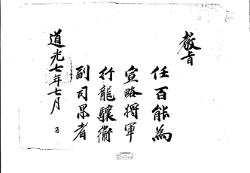 教旨
任百能為
宣略将軍
行龍驤衛
副司果者
道光七年七月 日